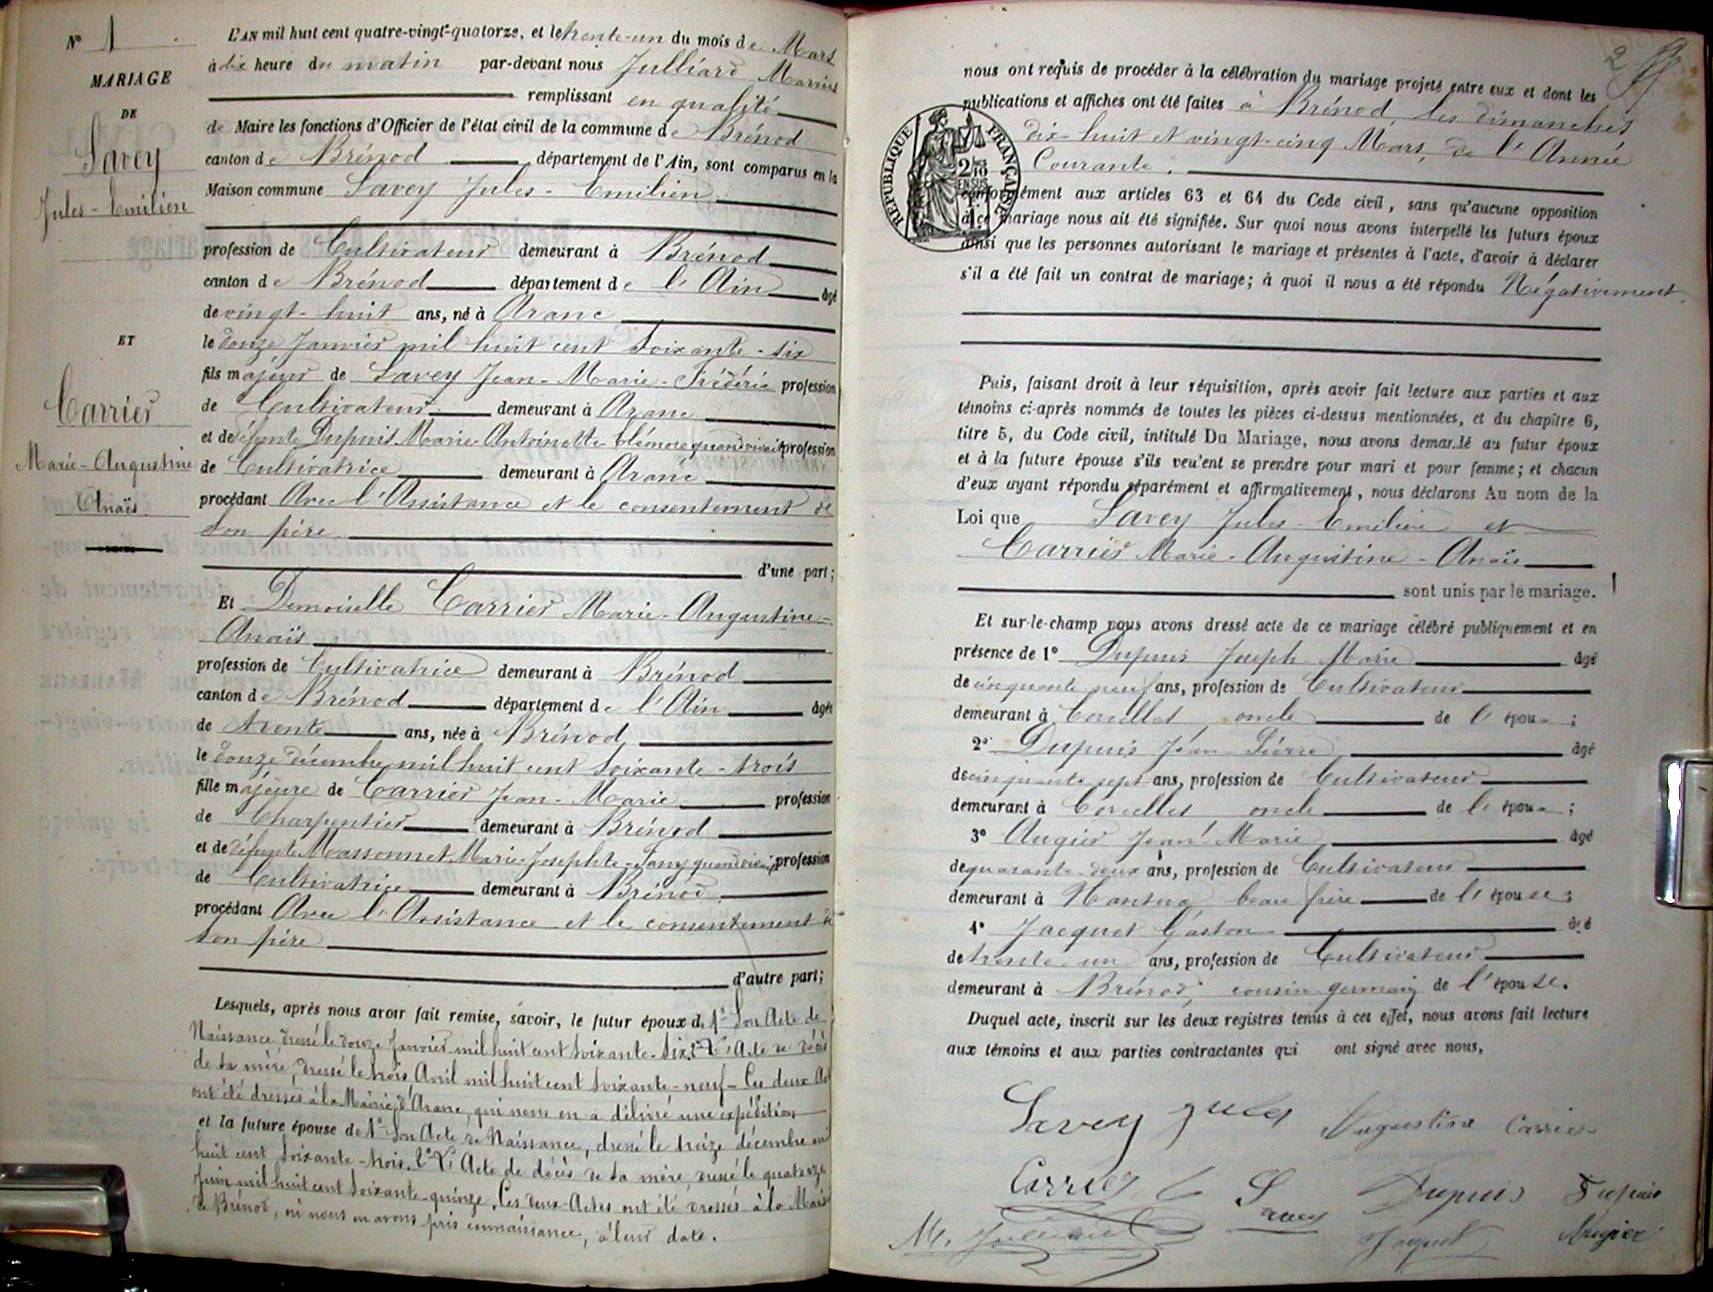 N° 1
MARIAGE
DE
Savey
Jules-Emilien
ET
Carrier
Marie-Augustine
Anaïs
L'AN mil huit cent quatre-vingt-quatorze, et le trente-un du mois de Mars
à dix heure du matin par-devant nous Julliard Marius
remplissant en qualité
de Maire les fonctions d'Officier de l'état civil de la commune de Brénod
canton de Brénod département de l'Ain, sont comparus en la
Maison commune Savey Jules-Emilien
profession de Cultivateur demeurant à Brénod
canton de Brénod département de l'Ain âgé
de vingt-huit ans, né à Aranc
le douze Janvier mil huit cent soixante-six
fils majeur de Savey Jean-Marie-Frédéric profession
de Cultivateur demeurant à Aranc
et de défunte Dupuis Marie Antoinette Eléonore quand vivait profession
de Cultivatrice demeurant à Aranc
procédant Avec l'Assistance et le consentement de
son père
d'une part;
Et Demoiselle Carrier Marie-Augustine-
Anaïs
profession de Cultivatrice demeurant à Brénod
canton de Brénod département de l'Ain âgée
de trente ans, née à Brénod
le douze décembre mil huit cent soixante-trois
fille majeure de Carrier Jean-Marie profession
de Charpentier demeurant à Brénod
et de défunte Moassonnet Marie-Josephte-Fany quand vivait profession
de Cultivatrice demeurant à Brénod
procédant Avec l'Assistance et le consentement de
son père
d'autre part;
Lesquels, après nous avoir fait remise, savoir, le futur époux de 1° Son Acte de
Naissance, dressé le douze Janvier mil huit cent soixante-six. 2° L'Acte de décès
de sa mère, dressé le trois Avril mil huit cent soixante-neuf - Ces deux Actes
ont été dressés à la Mairie d'Aranc, qui nous en a délivré une expédition
et la future épouse de 1° Son Acte de Naissance, dressé le treize décembre mil
huit cent soixante-trois. 2° L'Acte de décès de sa mère dressé le quatorze
Juin mil huit cent soixante-quinze. Ces deux Actes ont été dressés à la Mairie
de Brénod, où nous en avons pris connaissance, à leur date.
2
nous ont requis de procéder à la célébration du mariage projeté entre eux et dont les
publications et affiches ont été faites à Brénod, les dimanches
dix-huit et vingt-cinq Mars, de l'Année
Courante.
RÉPUBLIQUE FRANÇAISE
conformément aux articles 63 et 64 du Code civil, sans qu'aucune opposition
à ce mariage nous ait été signifiée. Sur quoi nous avons interpellé les futurs époux
ainsi que les personnes autorisant le mariage et présentes à l'acte, d'avoir à déclarer
s'il a été fait un contrat de mariage; à quoi il nous a été répondu Négativement.
Puis, faisant droit à leur réquisition, après avoir fait lecture aux parties et aux
témoins ci-après nommés de toutes les pièces ci-dessus mentionnées, et du chapitre 6,
titre 5, du Code civil, intitulé Du Mariage, nous avons demandé au futur époux
et à la future épouse s'ils veulent se prendre pour mari et pour femme; et chacun
d'eux ayant répondu séparément et affirmativement, nous déclarons Au nom de la
Loi que Savey Jules-Emilien et
Carrier Marie-Augustine-Anaïs
sont unis par le mariage.
Et sur-le-champ nous avons dressé acte de ce mariage célébré publiquement et en
présence de 1° Dupuis Joseph Marie âgé
de cinquante neuf ans, profession de Cultivateur
demeurant à Corcelles oncle de l'époux;
2° Dupuis Jean Pierre âgé
de cinquante sept ans, profession de Cultivateur
demeurant à Corcelles oncle de l'époux;
3° Augier Jean Marie âgé
de quarante-deux ans, profession de Cultivateur
demeurant à Nantua beau frère de l'épouse;
4° Jacquet Gaston âgé
de trente-un ans, profession de Cultivateur
demeurant à Brénod, cousin germain de l'épouse.
Duquel acte, inscrit sur les deux registres tenus à cet effet, nous avons fait lecture
aux témoins et aux parties contractantes qui ont signé avec nous,
Savey Jules Augustine Carrier
Carrier Savey Dupuis Dupuis
M. Julliard Jacquet Augier